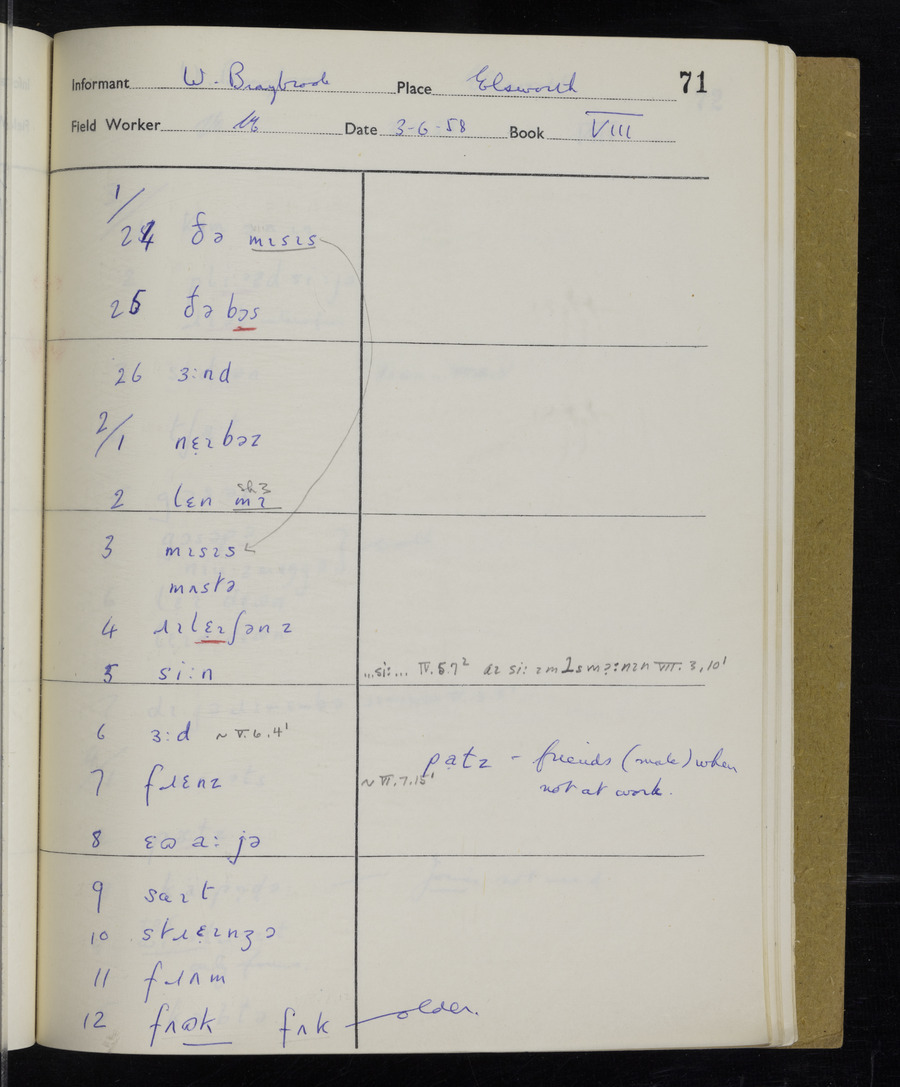 Informant W. Braybrook Place Elsworth 71
Field Worker Date 3-6-58 Book VIII
1/
24 ðə mɪsɪs
25 ðə bɔs
26 ɜ:nd
2/1 nɛ̣ɪbəz
2 lɛn mɪ
3 mɪsɪs
mʌstə
4 ɹɪlɛ̣ɪʃənz
5 si:n ...si:... IV.5.7² aɪ si: ɪm VII.3,10¹
6 ɜ:d ~ V.6.4¹
7 fɹɛnz ~ VI.7.15¹ patz - friends (male) when
not at work.
8 ɛɷ a: jə
9 saɪt
10 stɹɛ̣ɪnʒə
11 fɹʌm
12 fʌɷk fʌk — older.